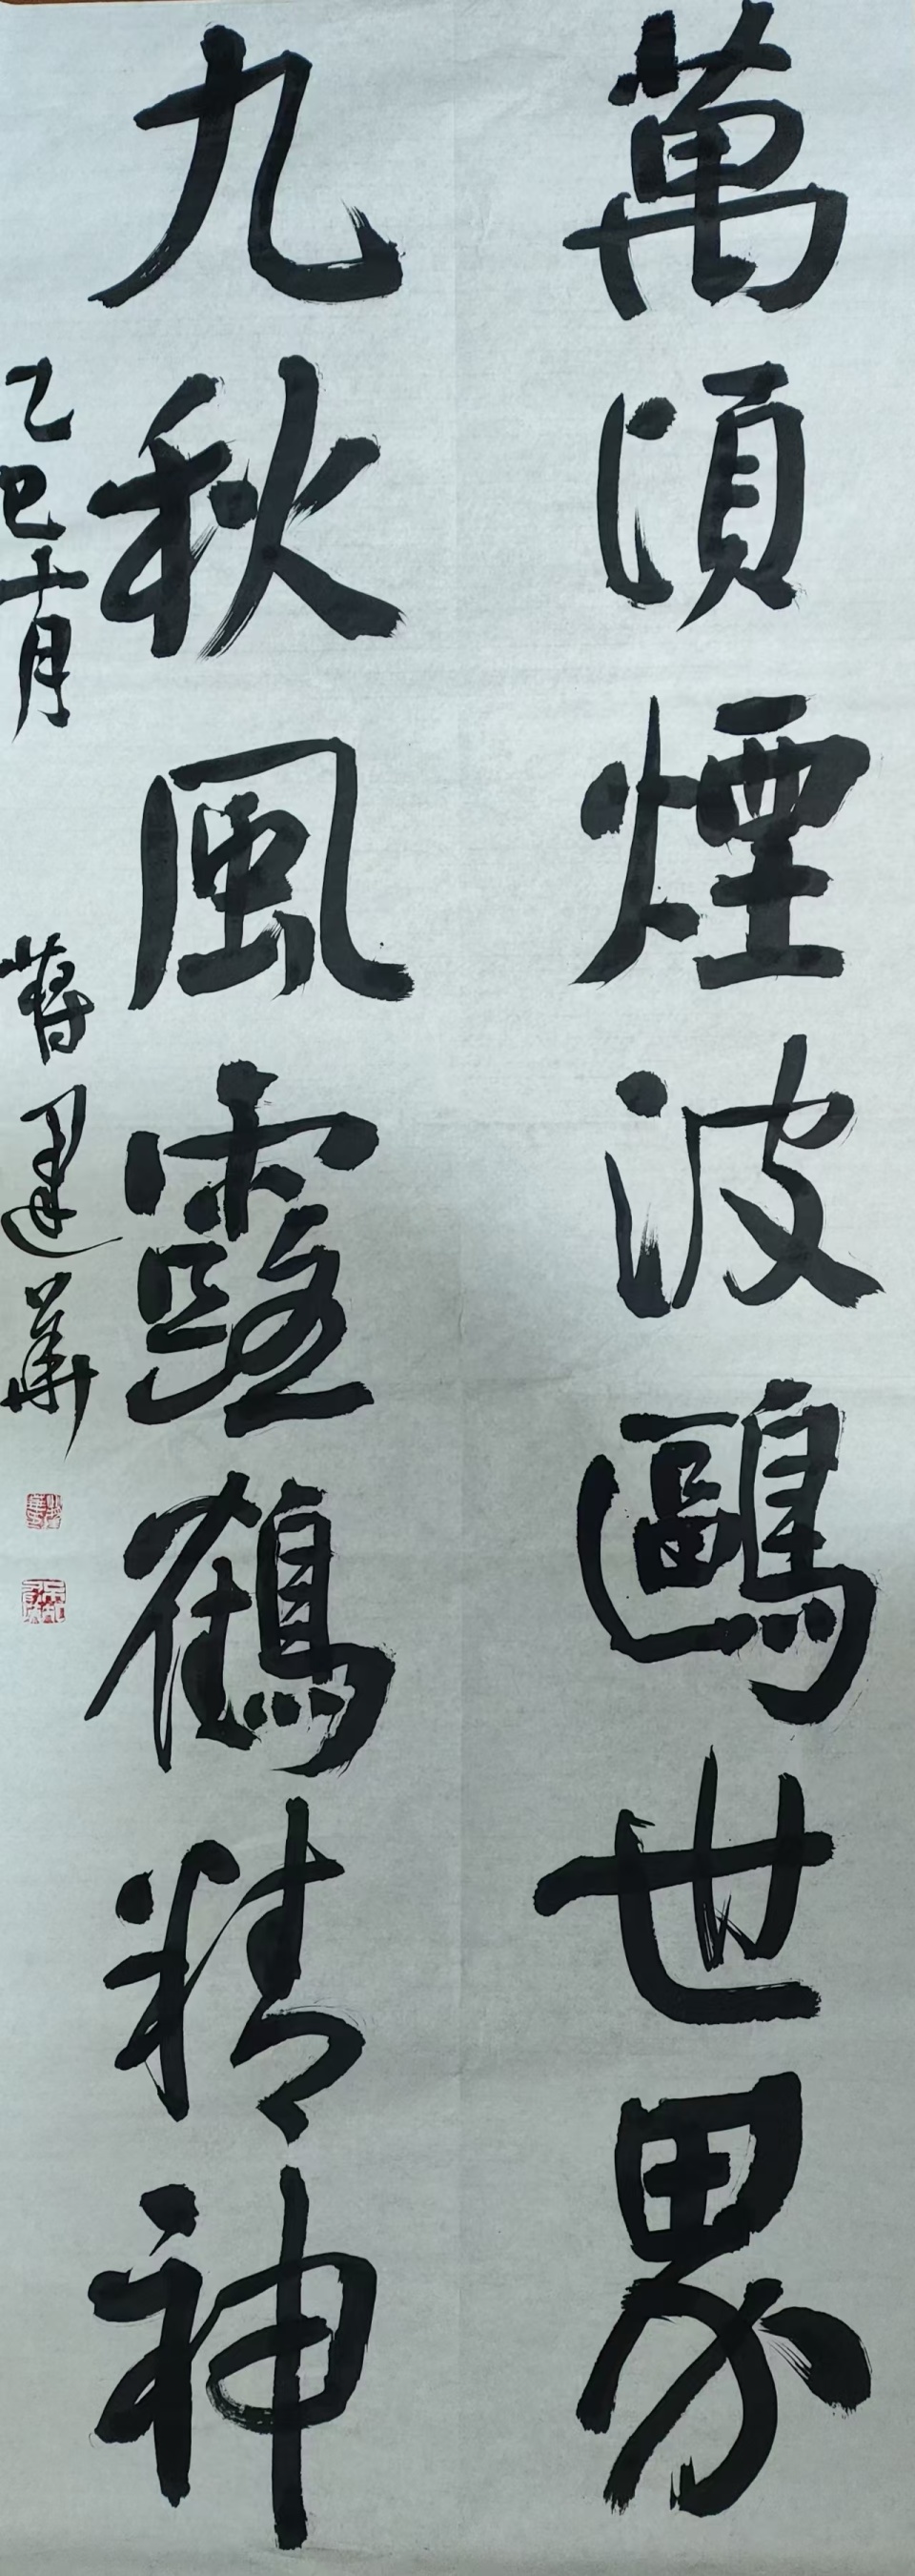 萬頃煙波鷗世界
九秋風露鶴精神
乙巳十月 蔣建華